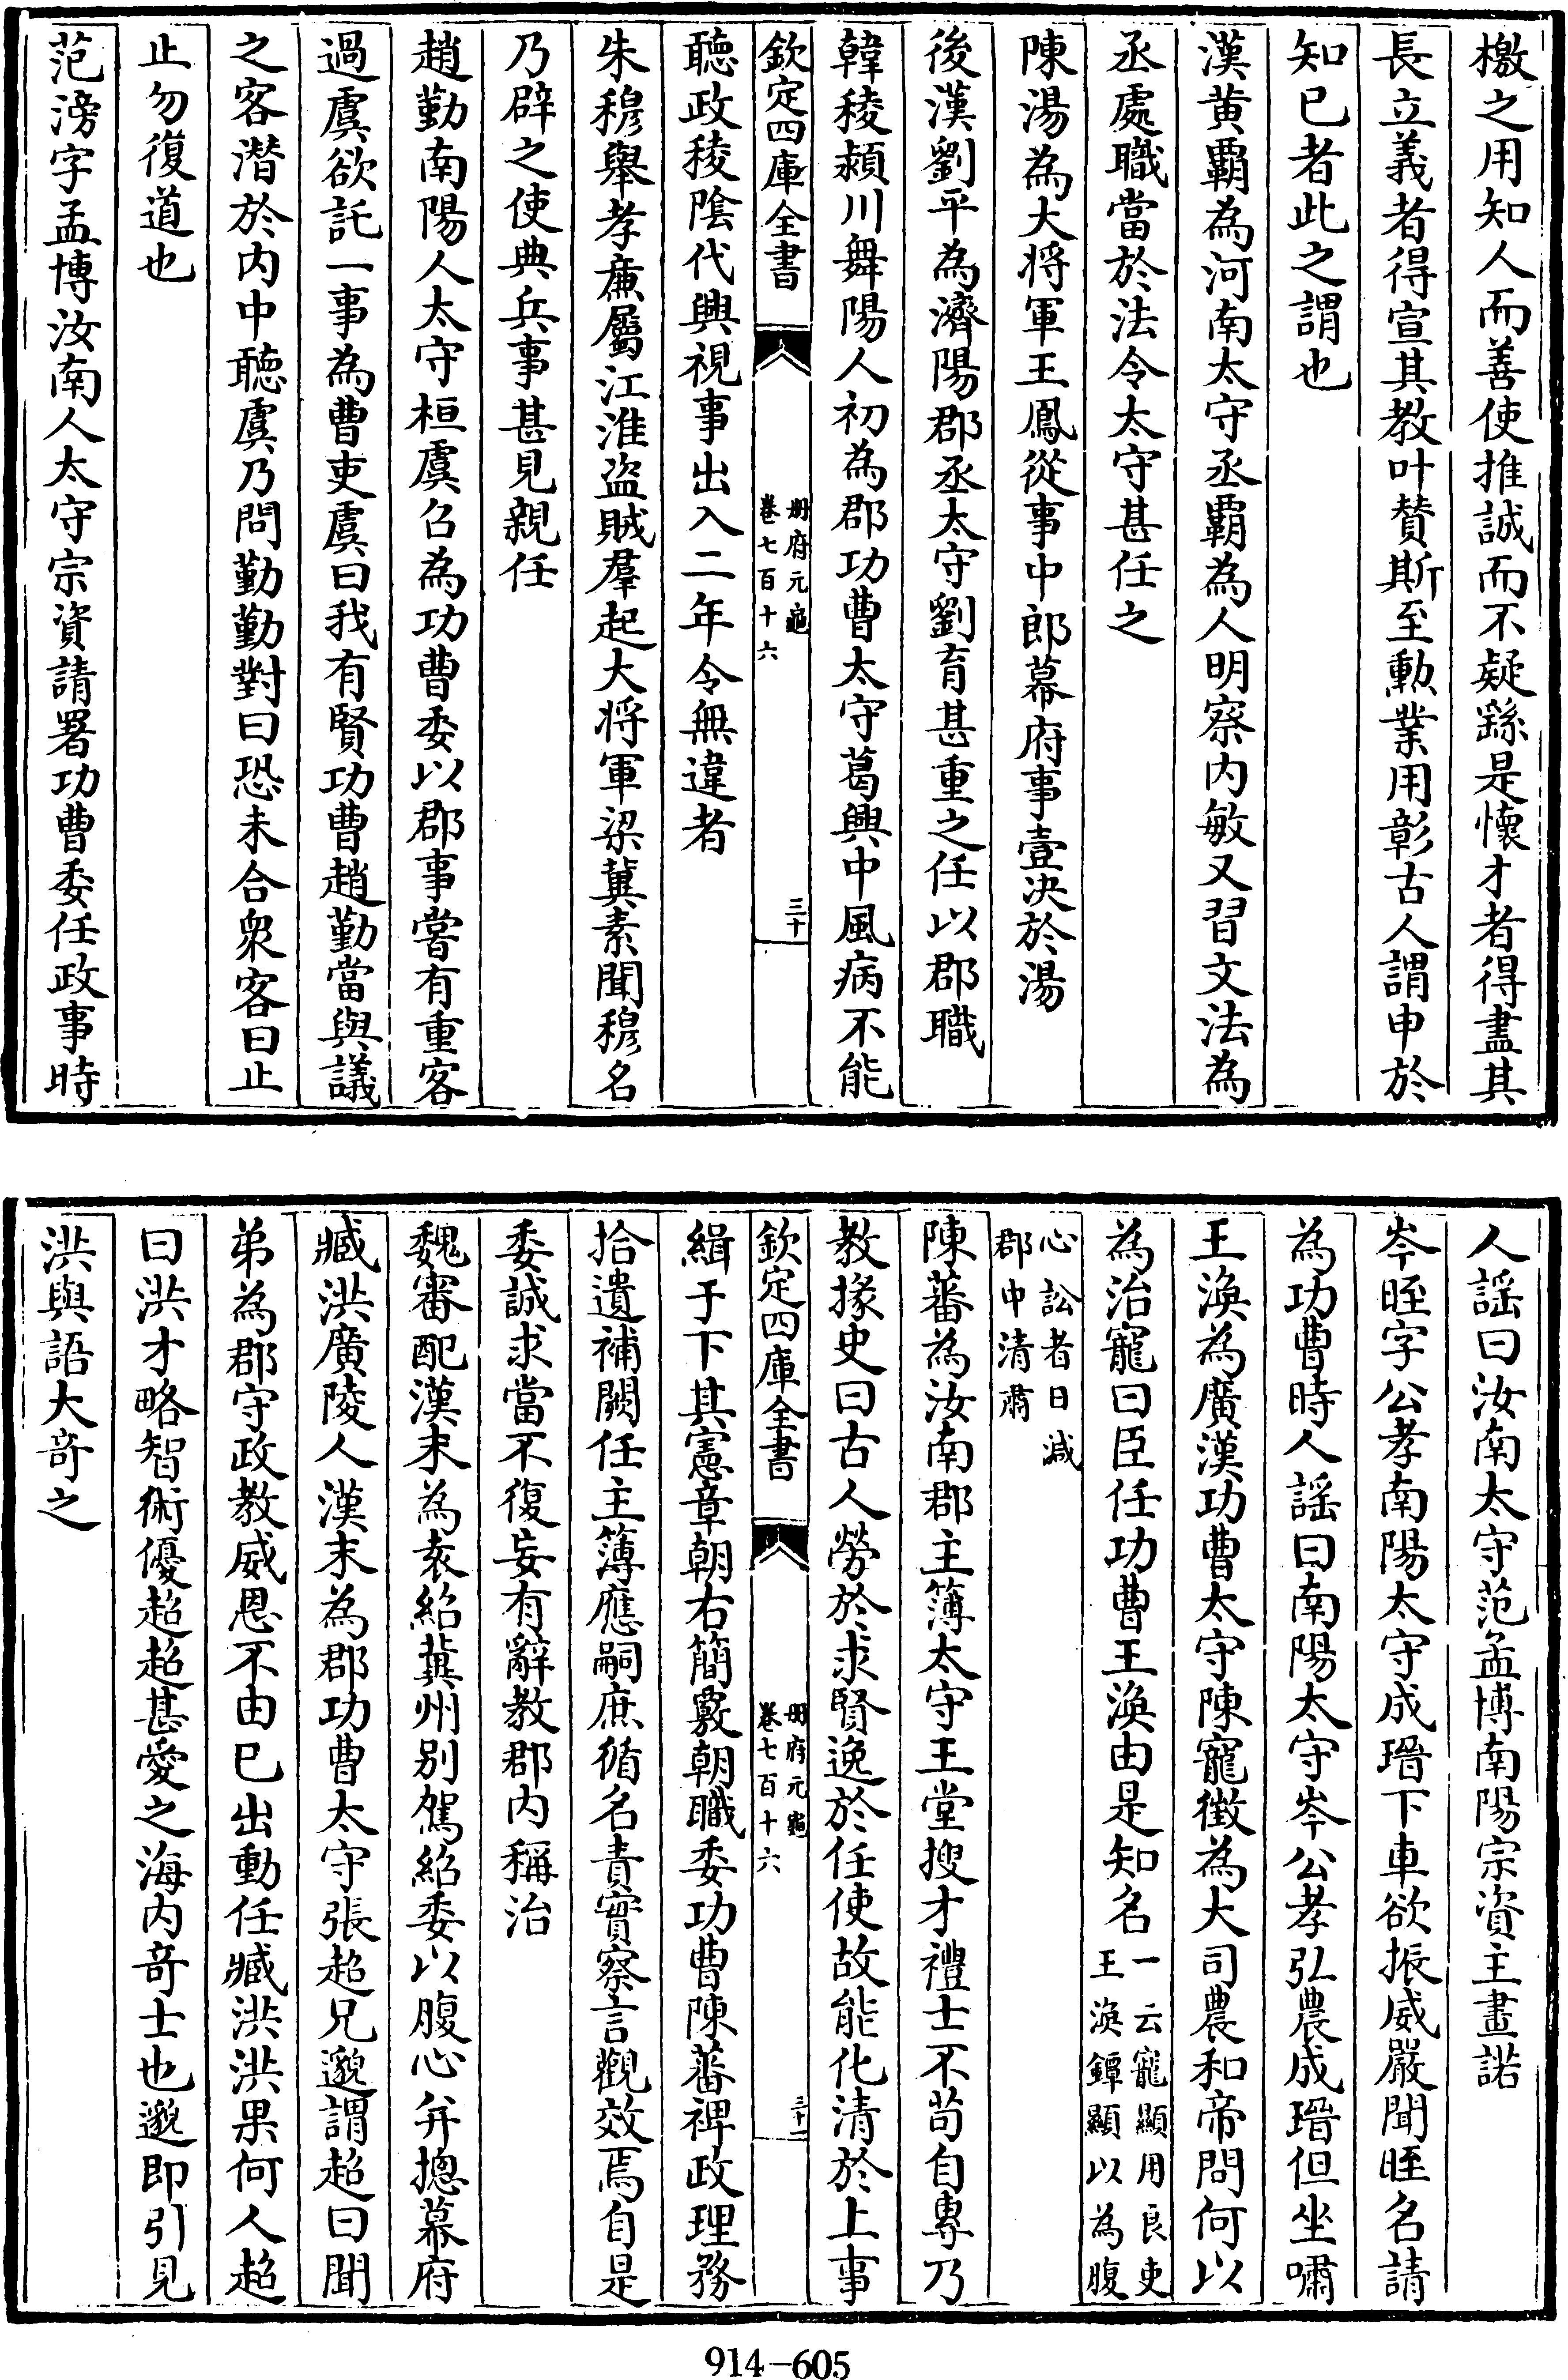 檄之用知人而善使推誠而不疑繇是懷才者得盡其
長立義者得宣其教叶賛斯至勲業用彰古人謂申於
知已者此之謂也
漢黄霸為河南太守丞霸為人明察内敏又習文法為
丞處職當於法令太守甚任之
陳湯為大将軍王鳳從事中郎幕府事壹决於湯
後漢劉平為濟陽郡丞太守劉育甚重之任以郡職
韓稜潁川舞陽人初為郡功曹太守葛興中風病不能
欽定四庫全書
册府元龜
卷七百十六
三十
聽政稜隂代興視事出入二年令無違者
朱穆舉孝廉屬江淮盗賊羣起大将軍梁冀素聞穆名
乃辟之使典兵事甚見親任
趙勤南陽人太守桓虞召為功曹委以郡事嘗有重客
過虞欲託一事為曹吏虞曰我有賢功曹趙勤當與議
之客潛於内中聽虞乃問勤勤對曰恐未合衆客曰止
止勿復道也
范滂字孟博汝南人太守宗資請署功曹委任政事時
人謡曰汝南太守范孟博南陽宗資主畫諾
岑晊字公孝南陽太守成瑨下車欲振威嚴聞晊名請
為功曹時人謡曰南陽太守岑公孝弘農成瑨但坐嘯
王渙為廣漢功曹太守陳寵徴為大司農和帝問何以
為治寵曰臣任功曹王渙由是知名一云寵顯用良吏
王渙鐔顯以為腹
心訟者日减
郡中清肅
陳蕃為汝南郡主簿太守王堂搜才禮士不苟自專乃
教掾史曰古人勞於求賢逸於任使故能化清於上事
欽定四庫全書
册府元龜
卷七百十六
三十一
緝于下其憲章朝右簡覈朝職委功曹陳蕃裨政理務
拾遺補闕任主簿應嗣庶循名責實察言觀效焉自是
委誠求當不復妄有辭教郡内稱治
魏審配漢末為袁紹冀州别駕紹委以腹心并摠幕府
臧洪廣陵人漢末為郡功曹太守張超兄邈謂超曰聞
弟為郡守政教威恩不由已出動任臧洪洪果何人超
曰洪才略智術優超超甚愛之海内竒士也邈即引見
洪與語大竒之
914-605